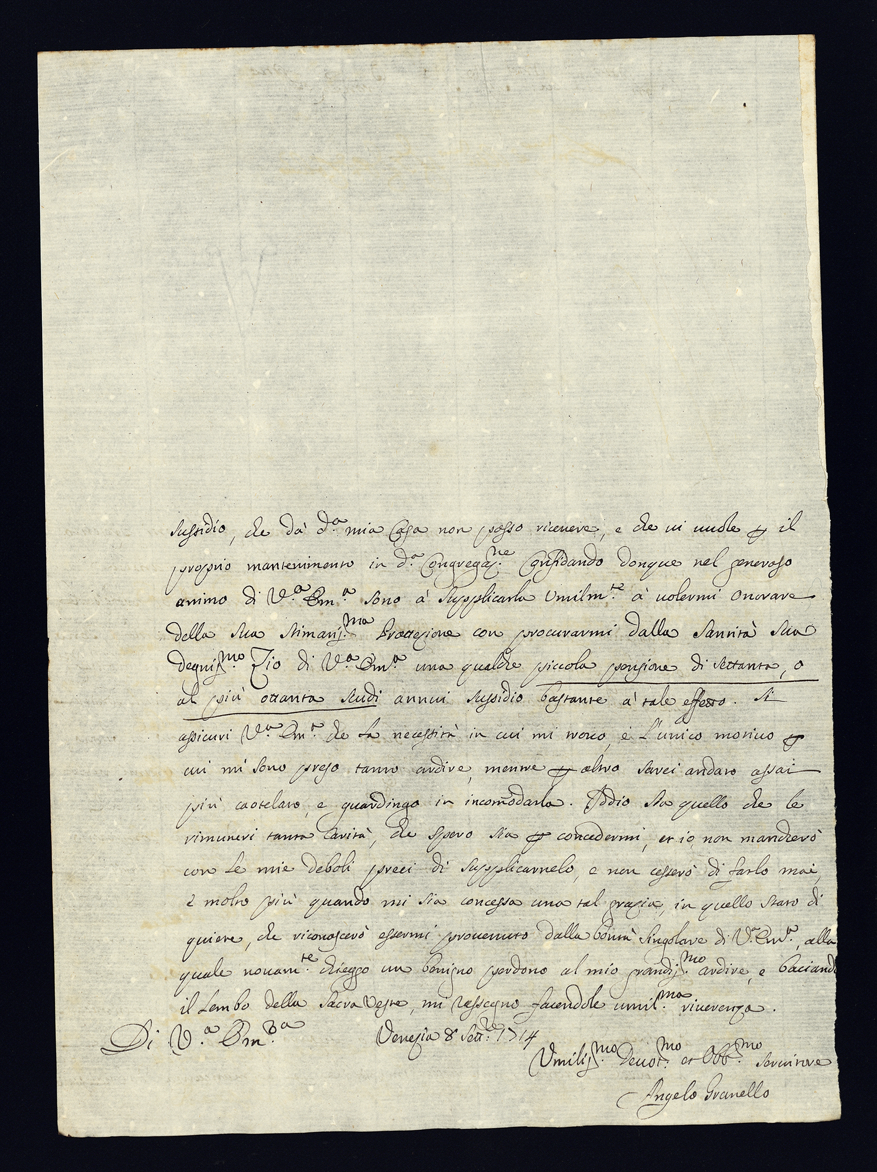 sussidio, che dà d.ª mia Casa non posso ricevere, e che vi vuole ꝑ il
proprio mantenimento in d.ª Congregaz.ne Confidando donque nel generoso
animo di V.ª Em.ª sono à supplicarla Umilm.te à volermi onorare
della sua stimatis.ma Protezione con procurarmi dalla Santità sua
degnis.mo Zio di V.ª Em.ª una qualche piccola pensione di settanta, o
al più ottanta scudi annui sussidio bastante à tale effetto. Si
assicuri V.ª Em.ª che la necessità in cui mi trovo, è l'unico motivo ꝑ
cui mi sono preso tanto ardire, mentre ꝑ altro sarei andato assai
più caotelato, e guardingo in incom̃odarla. Iddio sia quello che le
rimuneri tanta Carità, che spero sia ꝑ concedermi, et io non mancherò
con le mie deboli preci di supplicarnelo, e non cesserò di farlo mai,
e molto più quando mi sia concessa una tal grazia, in quello stato di
quiete, che riconoscerò essermi provenuto dalla bontà singolare di V.ª Em.ª, alla
quale novam.te chieggo un benigno perdono al mio grandis.mo ardire, e baciand
il Lembo della Sacra Veste, mi rassegno facendole umil.ma riverenza.
Di V.ª Em.za Venezia 8 Sett.re 1714
Umilis.mo Devot.mo et Obb.mo servitore
Angelo Granello